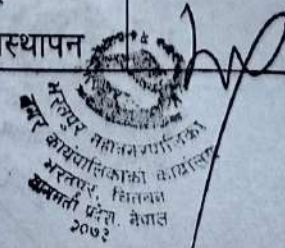 स्थापन
भरतपुर महानगरपालिका
नगर कार्यपालिकाको कार्यालय
भरतपुर, चितवन
बागमती प्रदेश, नेपाल
२०७३